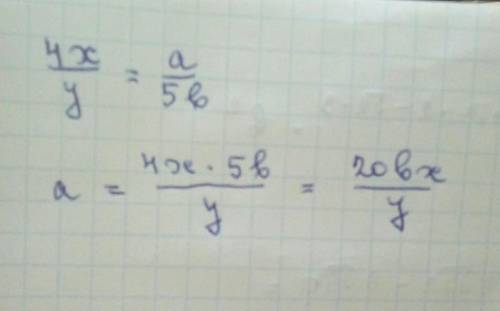 4x/y = a/5b
a = 4x · 5b/y = 20bx/y